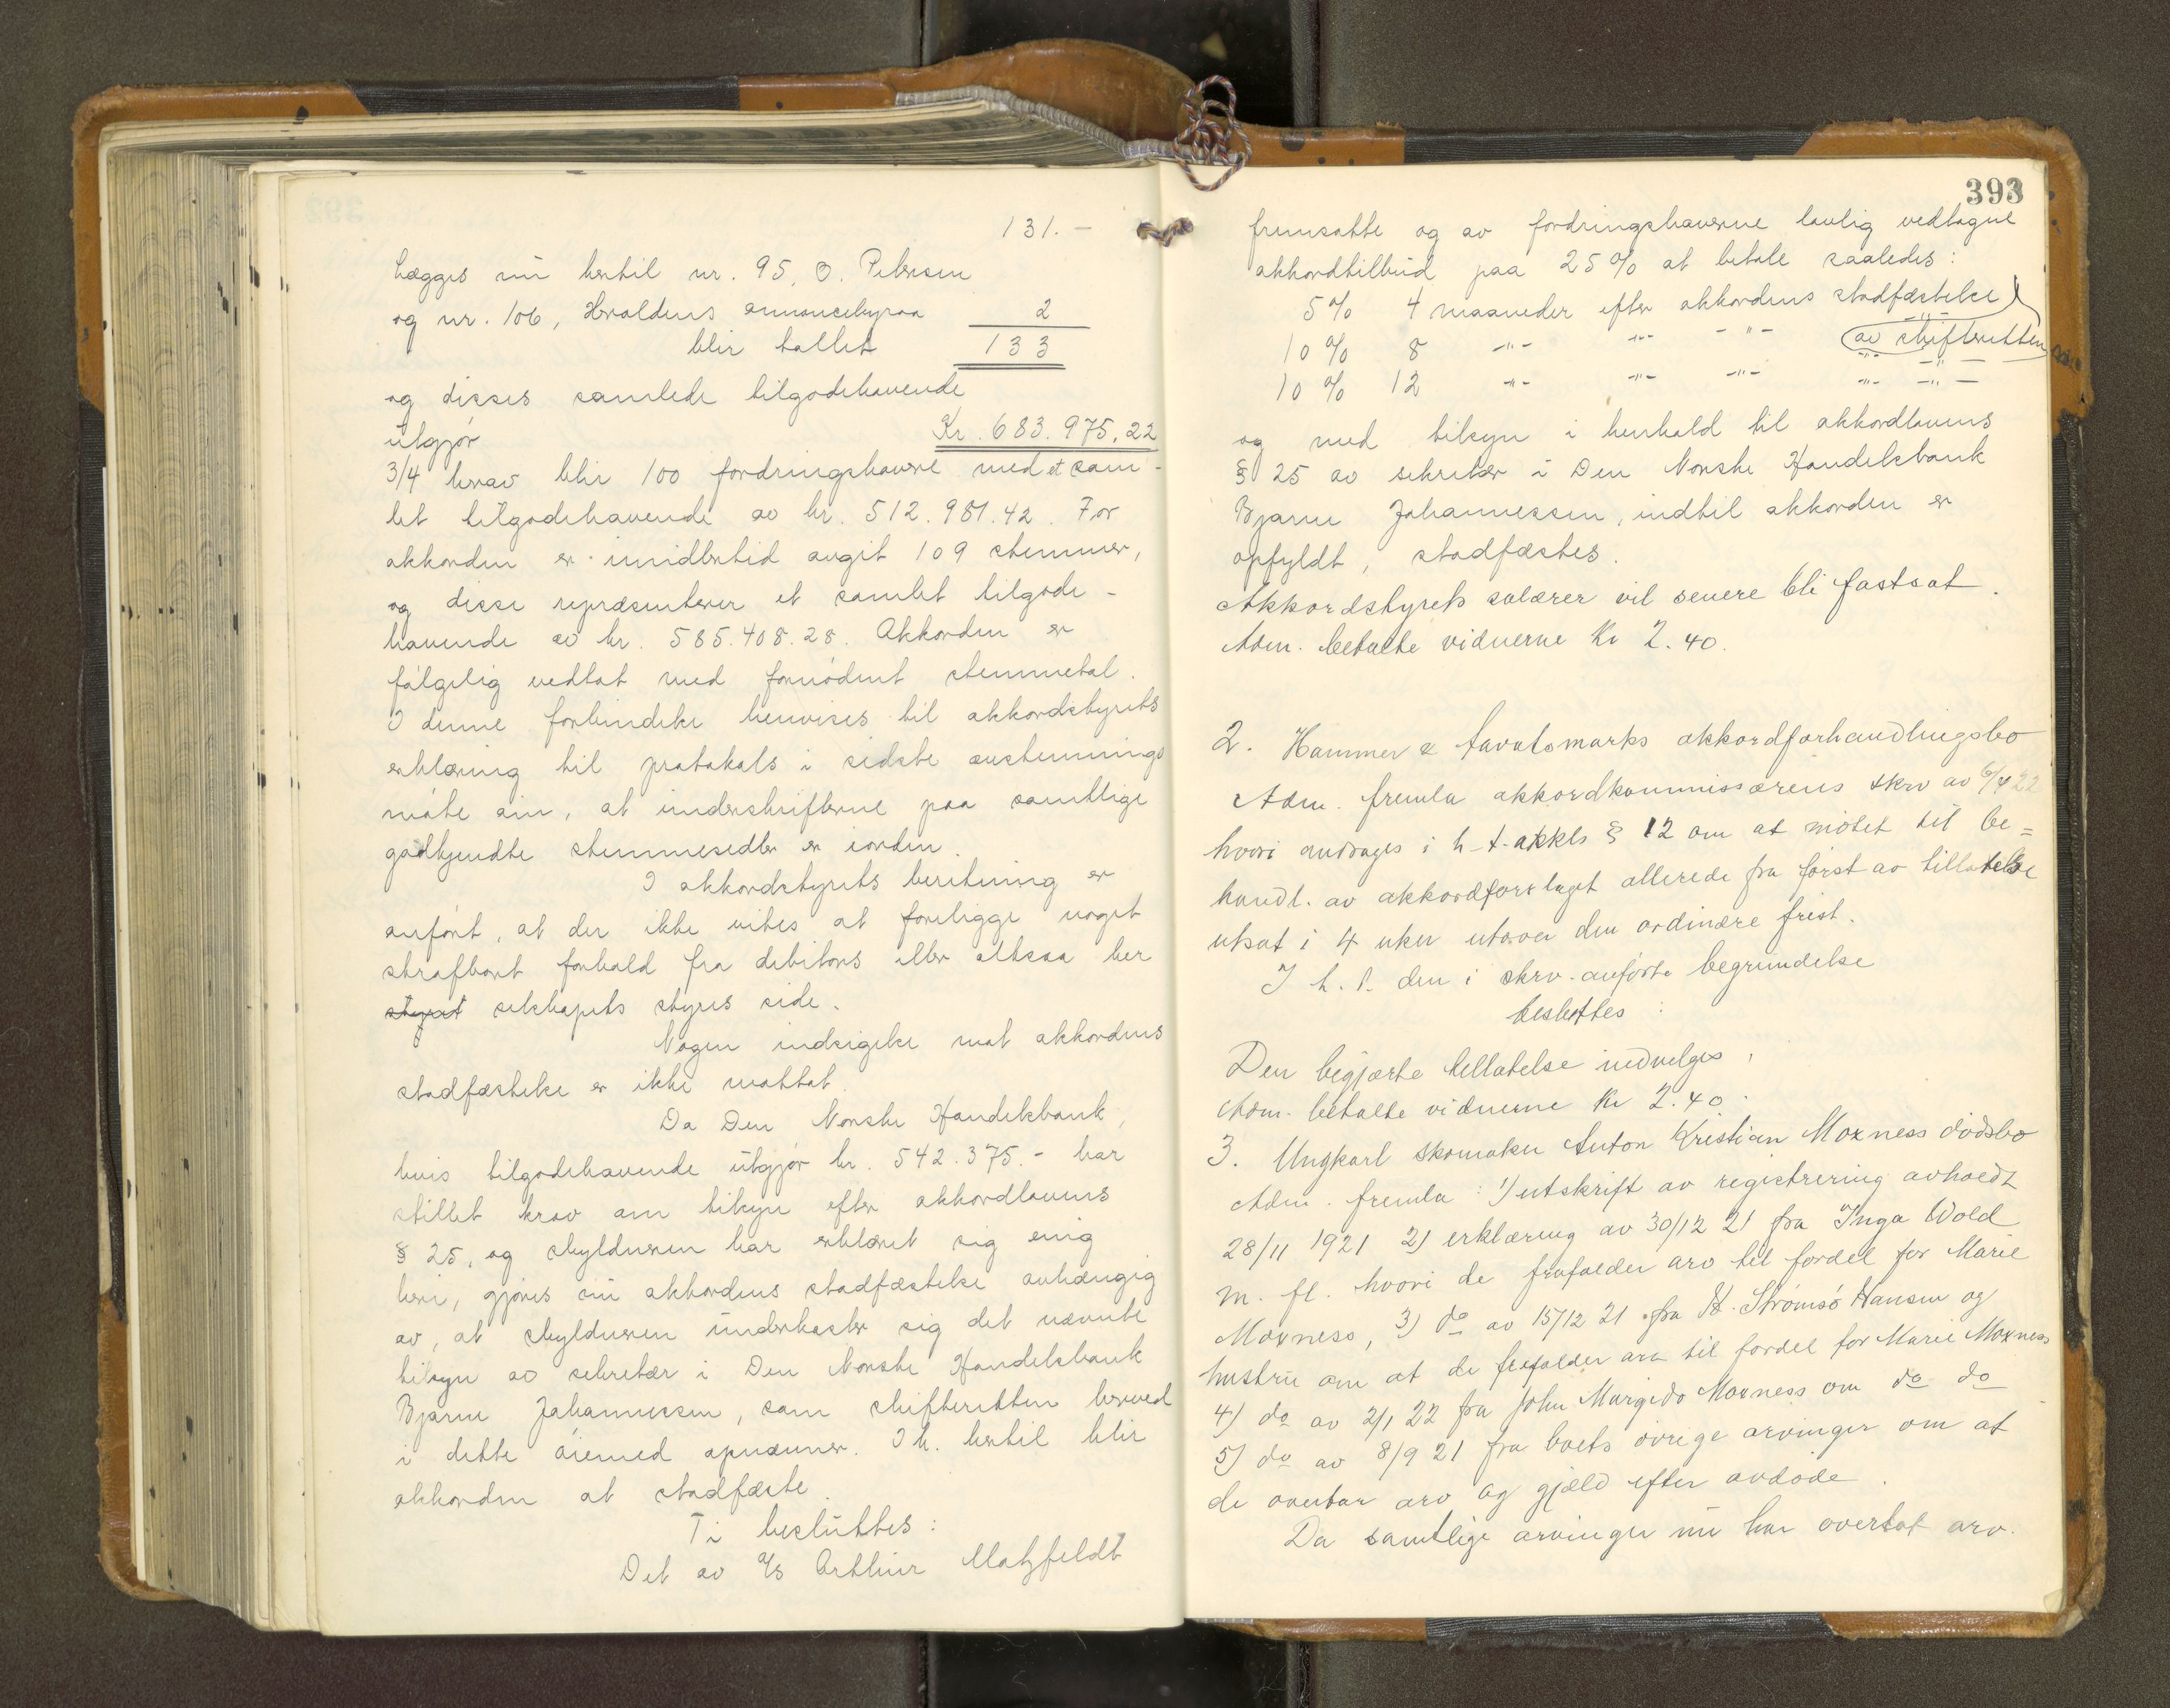 131.-
Lægges nu hertil nr. 95, O. Petersen
og nr. 106, Heroldens annoncebyraa 2
blir tallet 133
og disses samlede tilgodehavende
utgjør Kr. 683.975,22
3/4 herav blir 100 fordringshavere med et sam-
let tilgodehavende av kr. 512.981.42. For
akkorden er imidlertid avgit 109 stemmer,
og disse repræsenterer et samlet tilgode-
havende av kr. 585.408.28. Akkorden er
følgelig vedtat med fornødent stemmetal.
I denne forbindelse henvises til akkordstyrets
erklæring til protokols i sidste avstemnings
møte om, at underskrifterne paa samtlige
godkjendte stemmesedler er iorden.
I akkordstyrets beretning er
anført, at der ikke vites at foreligge noget
strafbart forhold fra debitors eller altsaa her
styret selskapets styres side.
Nogen indsigelse mot akkordens
stadfæstelse er ikke mottat.
Da Den Norske Handelsbank,
hvis tilgodehavende utgjør kr. 542.375.- har
stillet krav om tilsyn efter akkordlovens
§ 25, og skyldneren har erklæret sig enig
heri, gjøres nu akkordens stadfæstelse avhængig
av, at skyldneren underkaster sig det nævnte
tilsyn av sekretær i Den Norske Handelsbank
Bjarne Johannessen, som skifteretten herved
i dette øiemed opnævner. I h. hertil blir
akkorden at stadfæste.
Ti besluttes:
Det av A/S Arthur Matzfeldt
393
fremsatte og av fordringshaverne lovlig vedtagne
akkordtilbud paa 25% at betale saaledes:
5% 4 maaneder efter akkordens stadfæstelse
10% 8 -"- -"- -"- av skifteretten
10% 12 -"- -"- -"- -"- -"-
og med tilsyn i henhold til akkordlovens
§ 25 av sekretær i Den Norske Handelsbank
Bjarne Johannessen, indtil akkorden er
opfyldt, stadfæstes.
Akkordstyrets salærer vil senere bli fastsat.
Adm. betalte vidnerne Kr 2.40.
2. Hammer & akkordforhandlingsbo
Adm. fremla akkordkommissærens skrv av 6/4 22
hvori andrages i h t. akkls § 12 om at møtet til be=
handl. av akkordforslaget allerede fra først av tillatelse
utsat i 4 uker utover den ordinære frist.
I h. t. den i skrv. anførte begrundelse
besluttes:
Den begjærte tillatelse indvilges.
Adm. betalte vidnerne Kr 2.40.
3. Ungkarl skomaker Anton Kristian Moxness dødsbo
Adm. fremla: 1) utskrift av registrering avholdt
28/11 1921 2) erklæring av 30/12 21 fra Inga Wold
m. fl. hvori de frafalder arv til fordel for Marie
Moxness, 3) do av 15/12 21 fra H. Strømsø Hansen og
hustru om at de frafalder arv til fordel for Marie Moxness
4) do av 2/1 22 fra John Margido Moxness om do do
5) do av 8/9 21 fra boets øvrige arvinger om at
de overtar arv og gjæld efter avdøde.
Da samtlige arvinger nu har overtat arv.